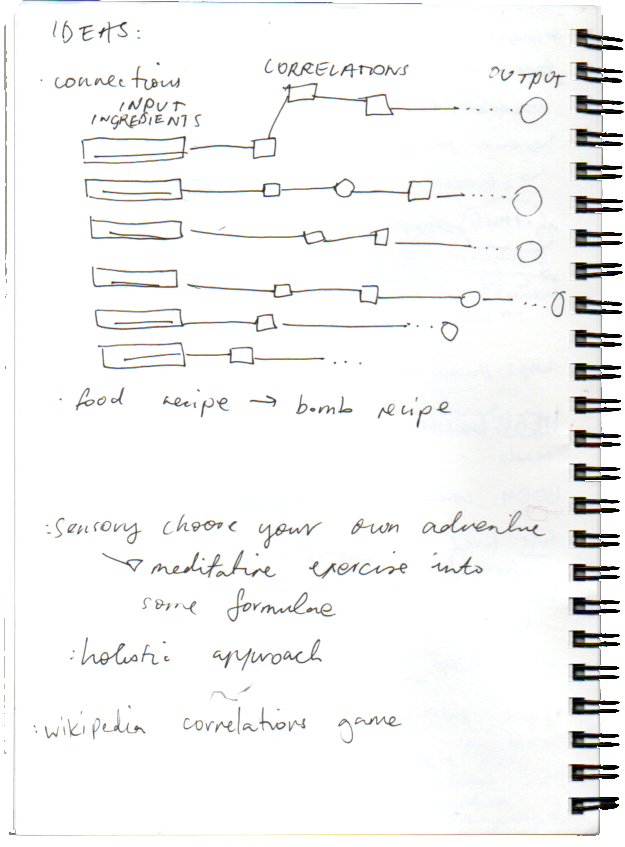 IDEAS:
· connections
CORRELATIONS
OUTPUT
INPUT
INGREDIENTS
· food recipe → bomb recipe
: sensory choose your own adventure
↘ meditative exercise into
some formulae
: holistic approach
: wikipedia correlations game